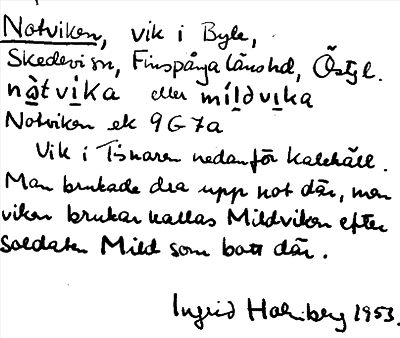 Notviken, vik i Byle,
Skedevi sn, Finspånga länshd, Östgl.
nòtvika eller mildvika
Notviken ek 9G7a
Vik i Tisnaren nedanför Kalehäll.
Man brukade dra upp not där, men
viken brukar kallas Mildviken efter
soldaten Mild som bott där.
Ingrid Holmberg 1953.